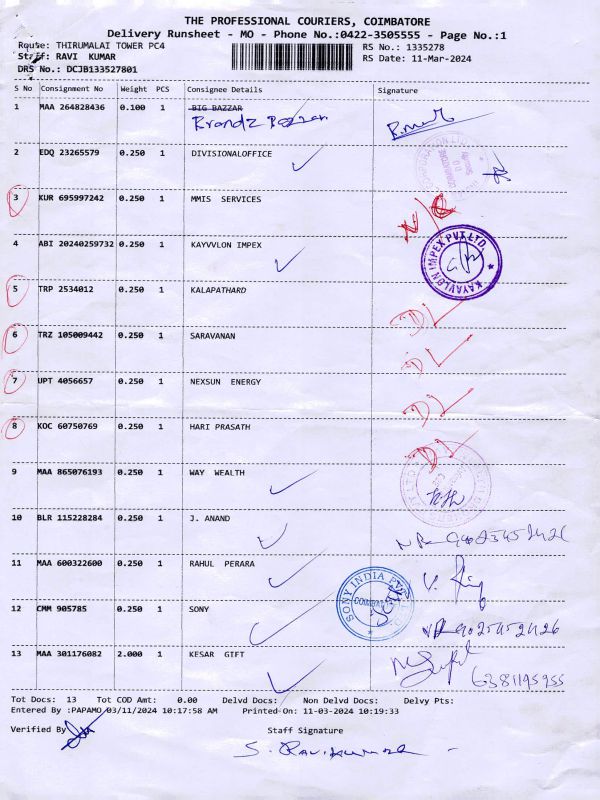 THE PROFESSIONAL COURIERS, COIMBATORE
Delivery Runsheet - MO - Phone No.:0422-3505555 - Page No.:1
Route: THIRUMALAI TOWER PC4 RS No.: 1335278
Staff: RAVI KUMAR RS Date: 11-Mar-2024
DRS No.: DCJB133527801
S No Consignment No Weight PCS Consignee Details Signature
1 MAA 264828436 0.100 1 BIG BAZZAR
Brandz Bazzar
2 EDQ 23265579 0.250 1 DIVISIONALOFFICE
3 KUR 695997242 0.250 1 MMIS SERVICES N/C
4 ABI 20240259732 0.250 1 KAYVVLON IMPEX KAYAVLON IMPEX PVT LTD.
5 TRP 2534012 0.250 1 KALAPATHARD DL
6 TRZ 105009442 0.250 1 SARAVANAN DL
7 UPT 4056657 0.250 1 NEXSUN ENERGY DL
8 KOC 60750769 0.250 1 HARI PRASATH DL
9 MAA 865076193 0.250 1 WAY WEALTH
10 BLR 115228284 0.250 1 J. ANAND
11 MAA 600322600 0.250 1 RAHUL PERARA
12 CMM 905785 0.250 1 SONY SONY INDIA PVT
13 MAA 301176082 2.000 1 KESAR GIFT 6381195955
Tot Docs: 13 Tot COD Amt: 0.00 Delvd Docs: Non Delvd Docs: Delvy Pts:
Entered By :PAPAMO/03/11/2024 10:17:58 AM Printed-On: 11-03-2024 10:19:33
Verified By Staff Signature
S. Ravikumar